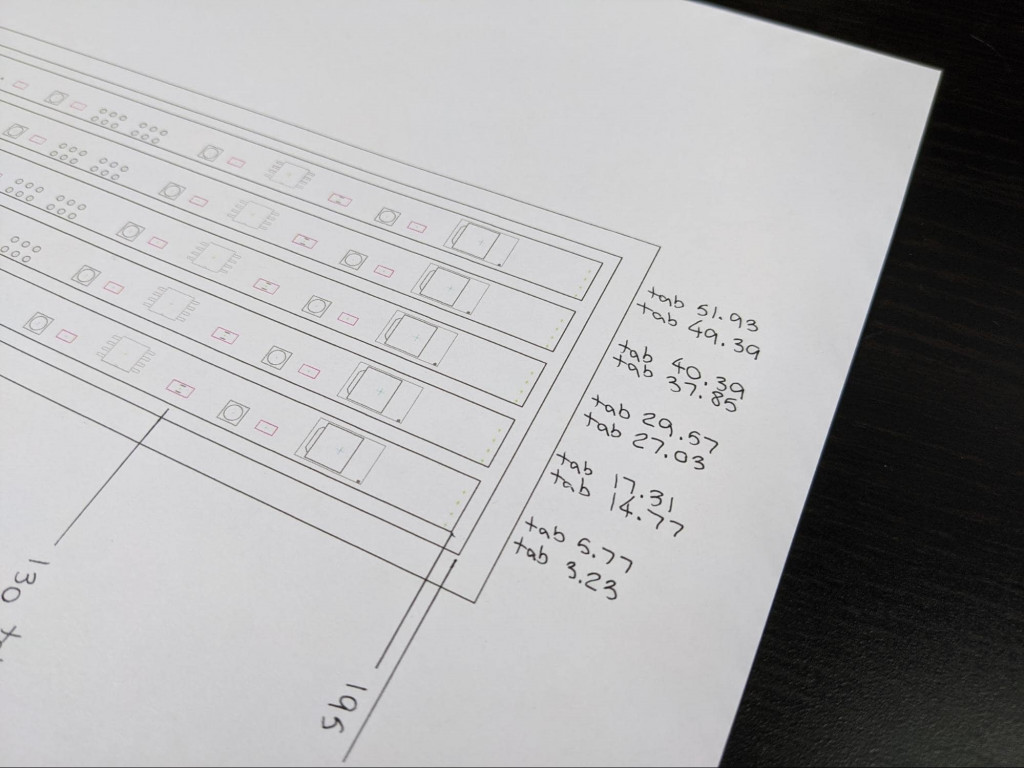 tab 51.93
tab 49.39
tab 40.39
tab 37.85
tab 29.57
tab 27.03
tab 17.31
tab 14.77
tab 5.77
tab 3.23
195
130